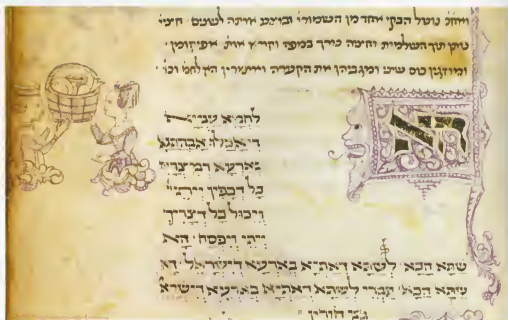 נוטל הבקי אחד מן השמורי ובוצע אותה לשנים חציו
נותן תוך השלמות וחציה כורך במפה אפיקומן
ומוזגין כוס שיני ומגביהין את הקערה ואומרין הא לחמא וכו'
הא
לחמא עניא
די אכלו אבהתנא
בארעא דמצרים
כל דכפין ייתי
וייכול כל דצריך
ייתי ויפסח הא
שתא הכא לשתא דאתיא בארעא דישראל הא
שתא הכא לשתא דאתיא בארעא דישרא
בני חורין